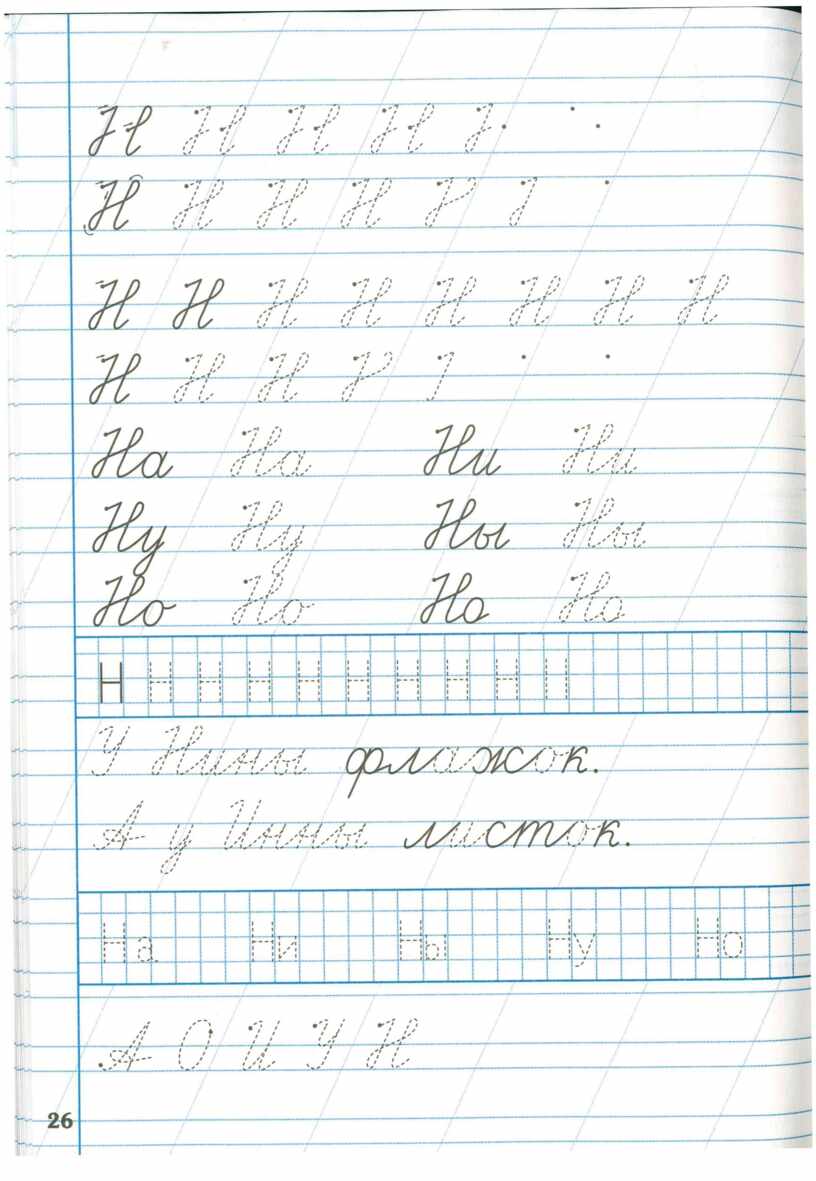 Н Н Н Н
Н Н Н Н
Н Н Н Н Н Н Н Н
Н Н Н
На На Ни Ни
Ну Ну Ны Ны
Но Но На На
Н Н Н Н Н Н Н Н Н
У Нины флажок.
А у Инны листок.
На Ни Ны Ну Но
А О И У Н
26